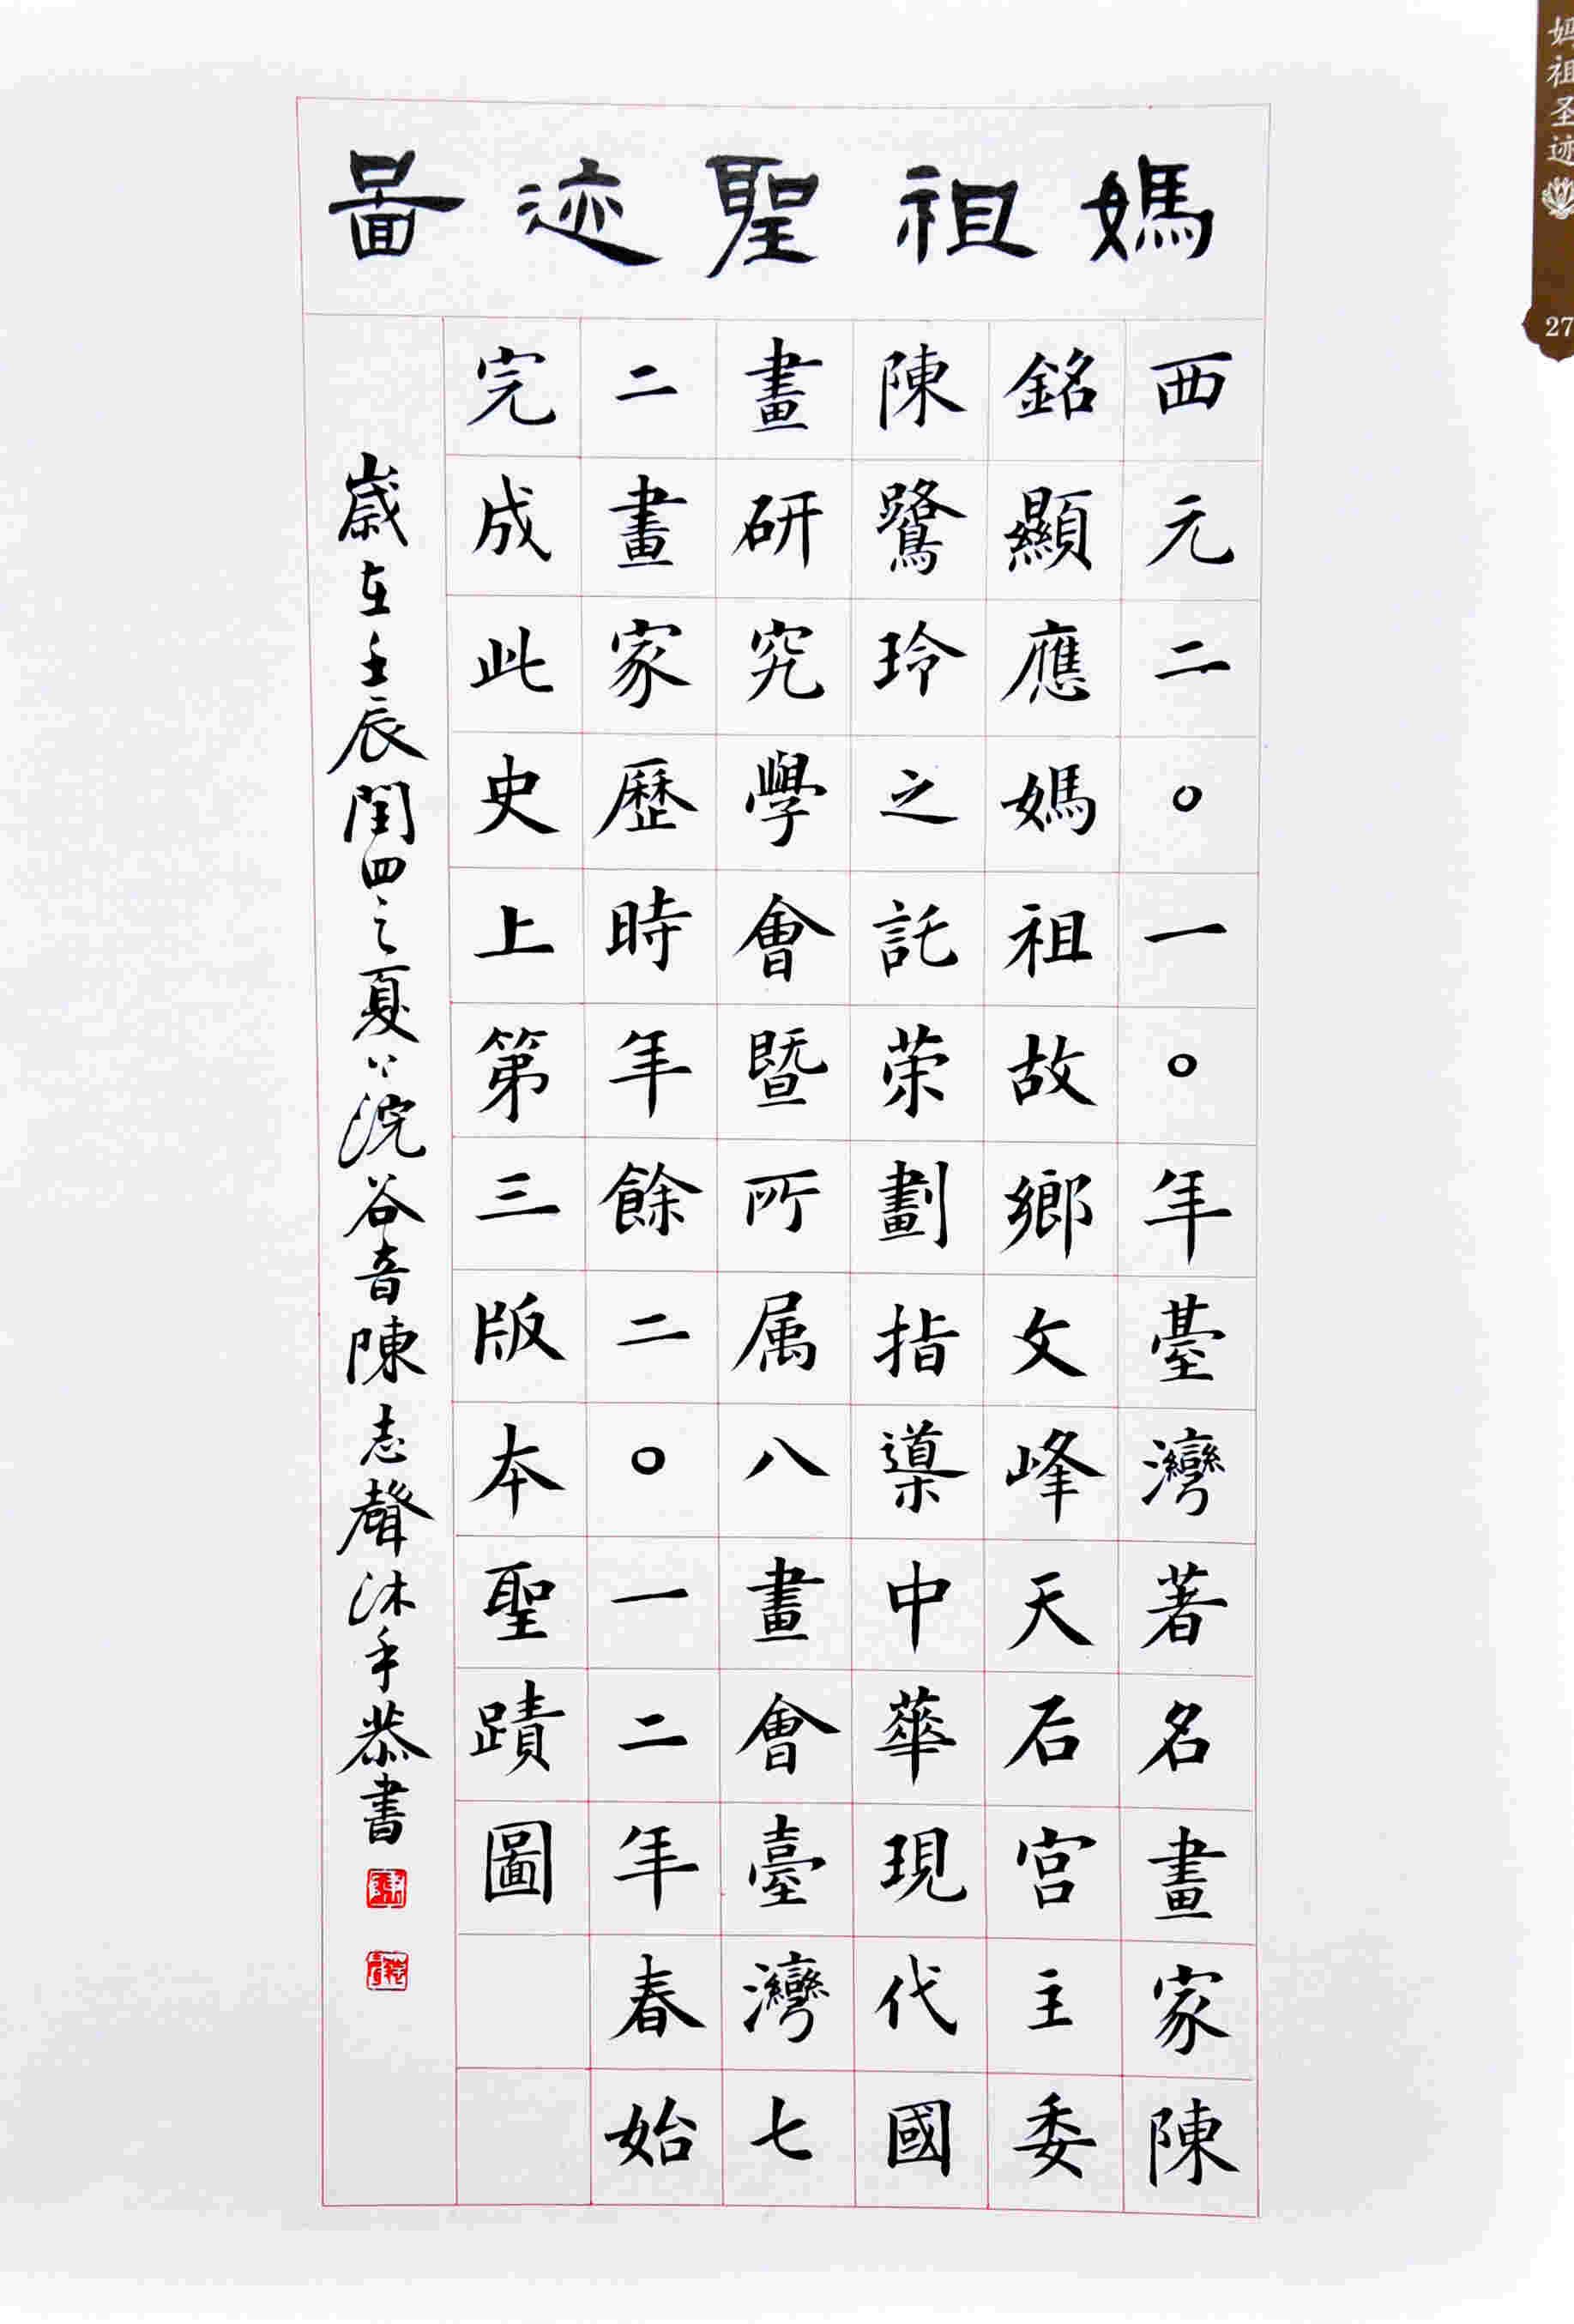 媽祖聖迹啚
西元二〇一〇年臺灣著名畫家陳
銘顯應媽祖故鄉文峰天后宮主委
陳鷺玲之託荣劃指導中華現代國
畫研究學會暨所属八畫會臺灣七
二畫家歷時年餘二〇一二年春始
完成此史上第三版本聖蹟圖
歲在壬辰閏四之夏於浣谷音陳志聲沐手恭書
妈祖圣迹
27